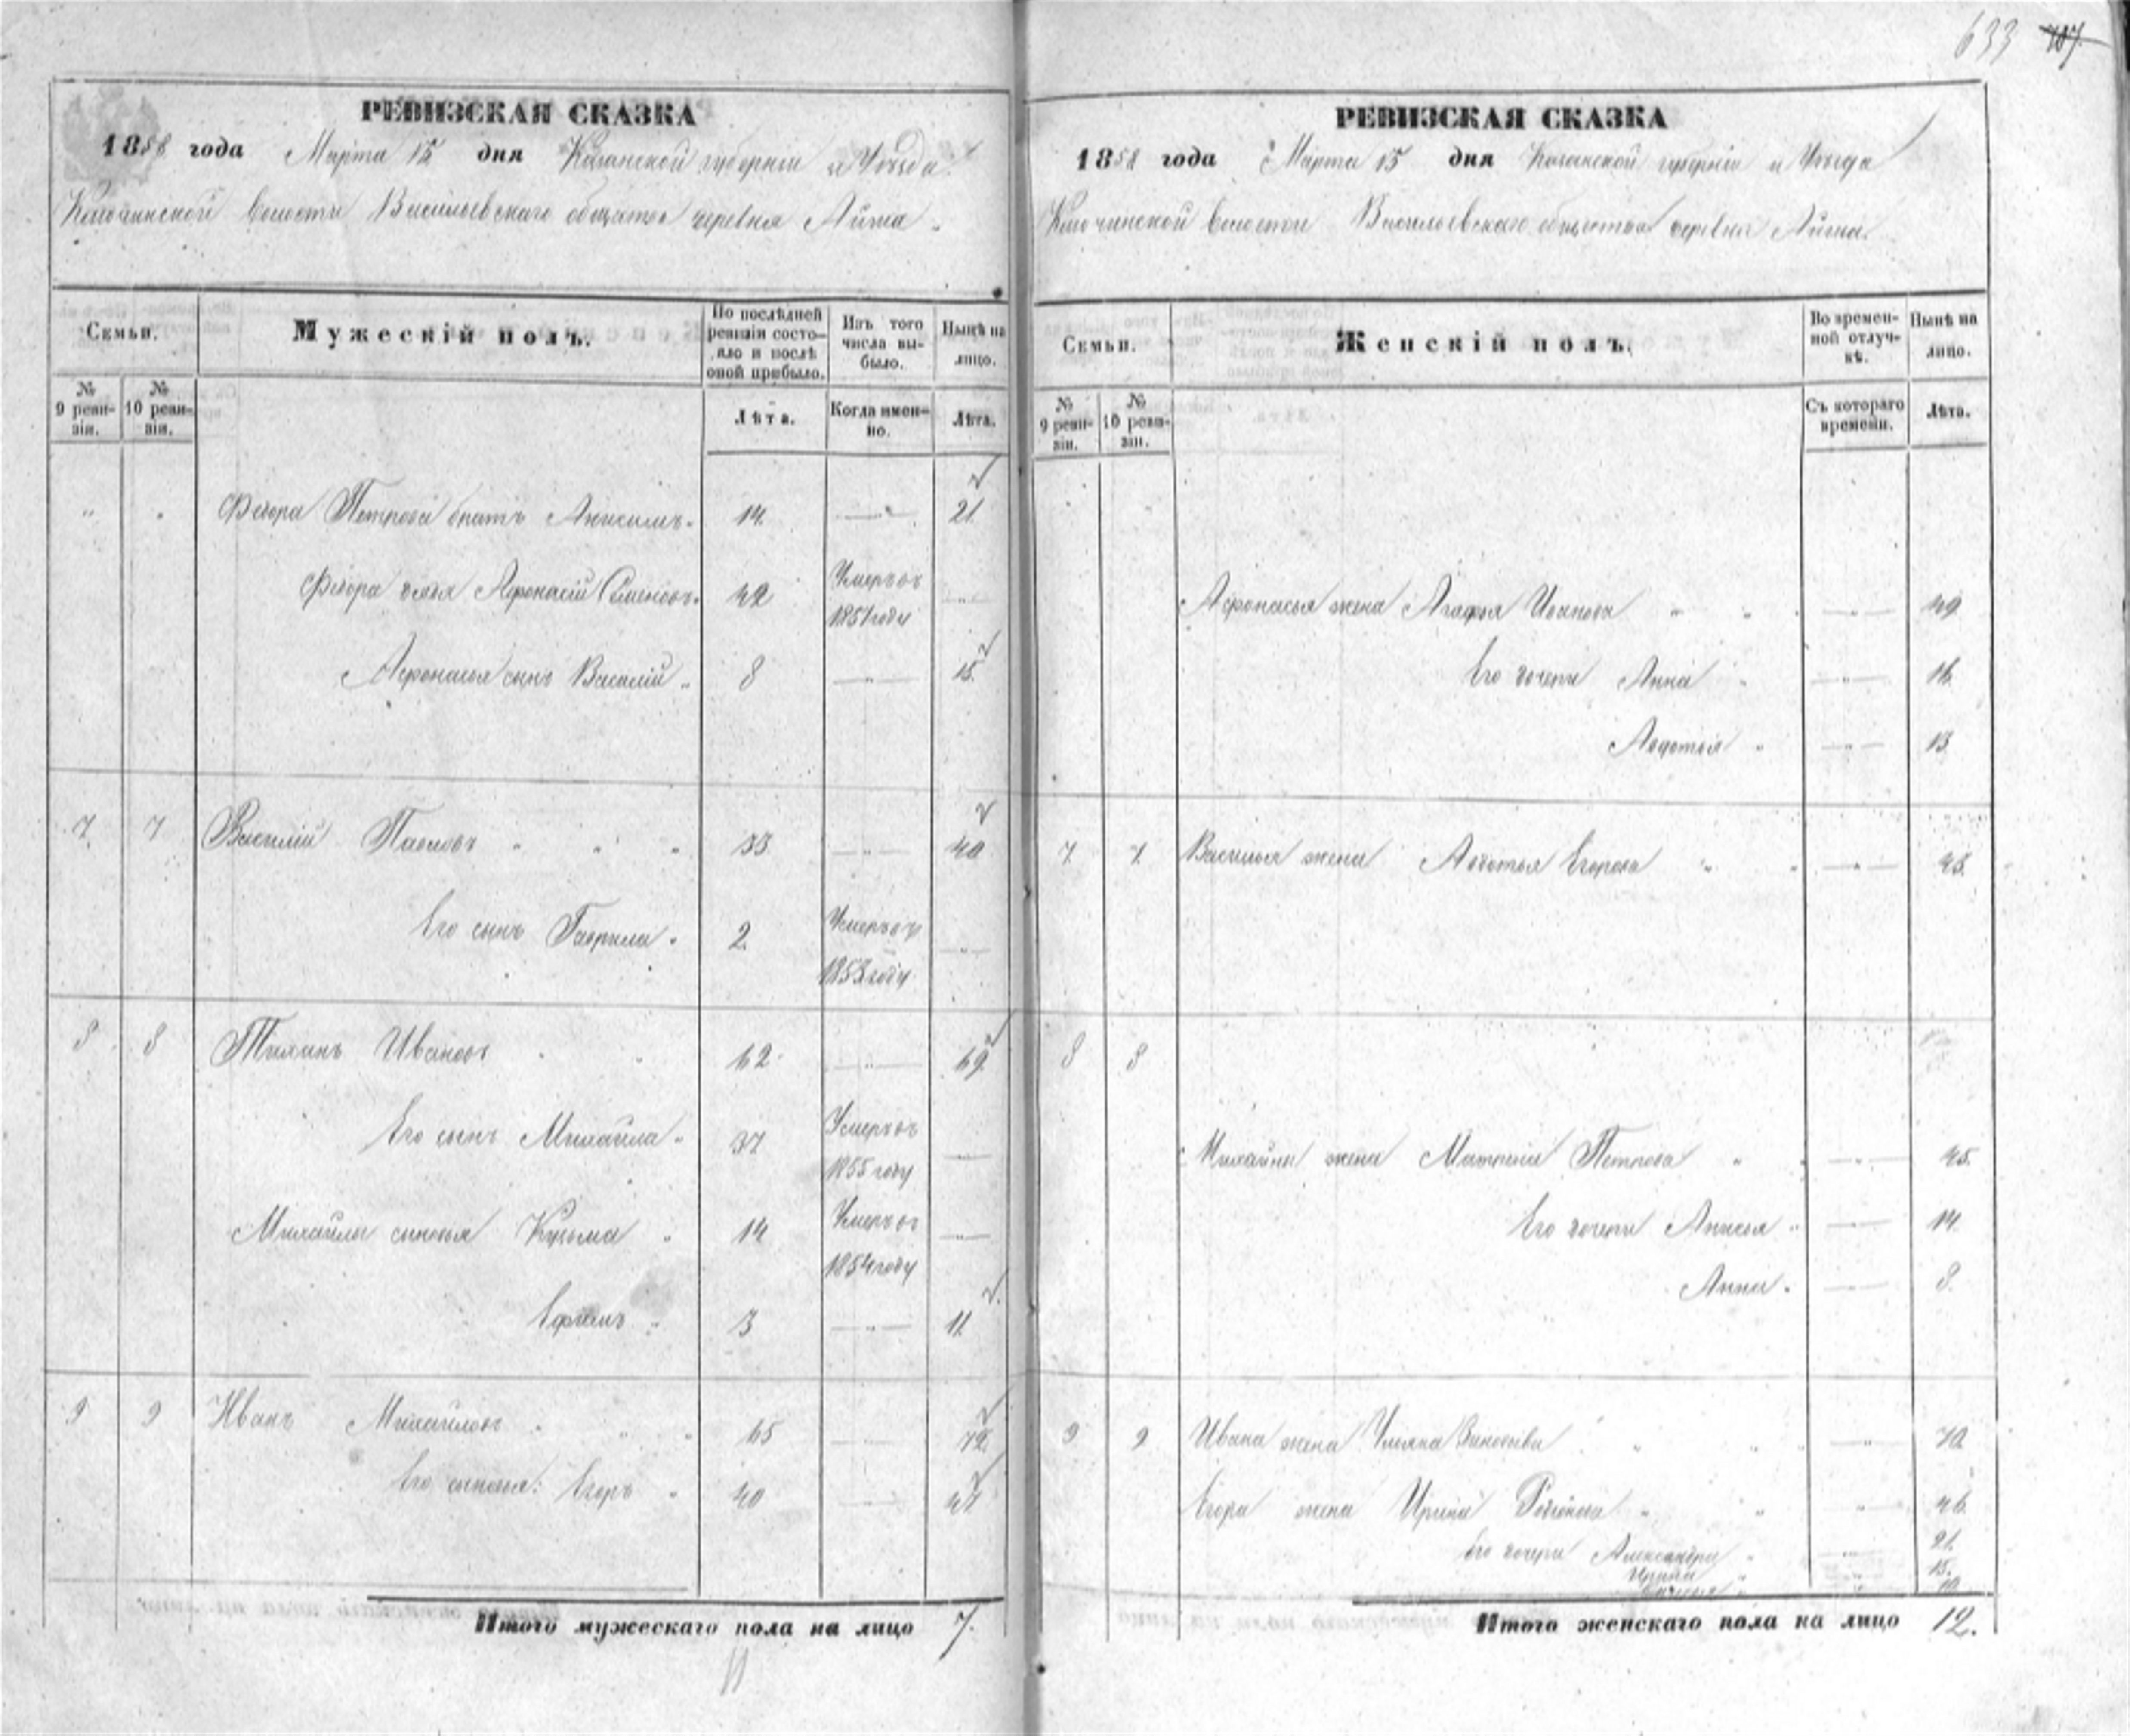 633 107.
РЕВИЗСКАЯ СКАЗКА
1858 года Марта 15 дня Казанской губерніи и Уѣзда
волости Васильевскаго общества деревня Айша.
Семьи.
Мужескій полъ.
По послѣдней ревизіи состояло и послѣ оной прибыло.
Изъ того числа выбыло.
Нынѣ на лицо.
№ 9 ревизіи.
№ 10 ревизіи.
Лѣта.
Когда именно.
Лѣта.
Федора Петрова братъ Анисимъ 14. 21.
Федора дядя Афонасій Семеновъ 42 Умеръ въ 1851 году
Афонасья сынъ Василій 8 15.
7. 7 Василій Павловъ 33 40
Его сынъ Гаврила 2. Умеръ въ 1853 году
8 8 Ивановъ 62 69.
Его сынъ Михайла 37 Умеръ въ 1855 году
Михайлы сыновья Кузьма 14 Умеръ въ 1854 году
Ефимъ 3 11.
9 9 Иванъ Михайловъ 65 72.
Его сыновья: Егоръ 40 47
Итого мужескаго пола на лицо 7.
РЕВИЗСКАЯ СКАЗКА
1858 года Марта 15 дня Казанской губерніи и Уѣзда
волости Васильевскаго общества деревня Айша.
Семьи.
Женскій полъ.
Во временной отлучкѣ.
Нынѣ на лицо.
№ 9 ревизіи.
№ 10 ревизіи.
Съ котораго времени.
Лѣта.
Афонасья жена Агафья Иванова 49.
Его дочери Анна 16.
Авдотья 13.
7. 7. Василья жена Авдотья Егорова 43.
8 8
Михайлы жена Матрена Петрова 45.
Его дочери Анисья 14.
Анна 8.
9 9 Ивана жена Ульяна 70.
Егора жена Ирина Родіонова 46.
Его дочери Александра 21.
Ирина 15.
10
Итого женскаго пола на лицо 12.